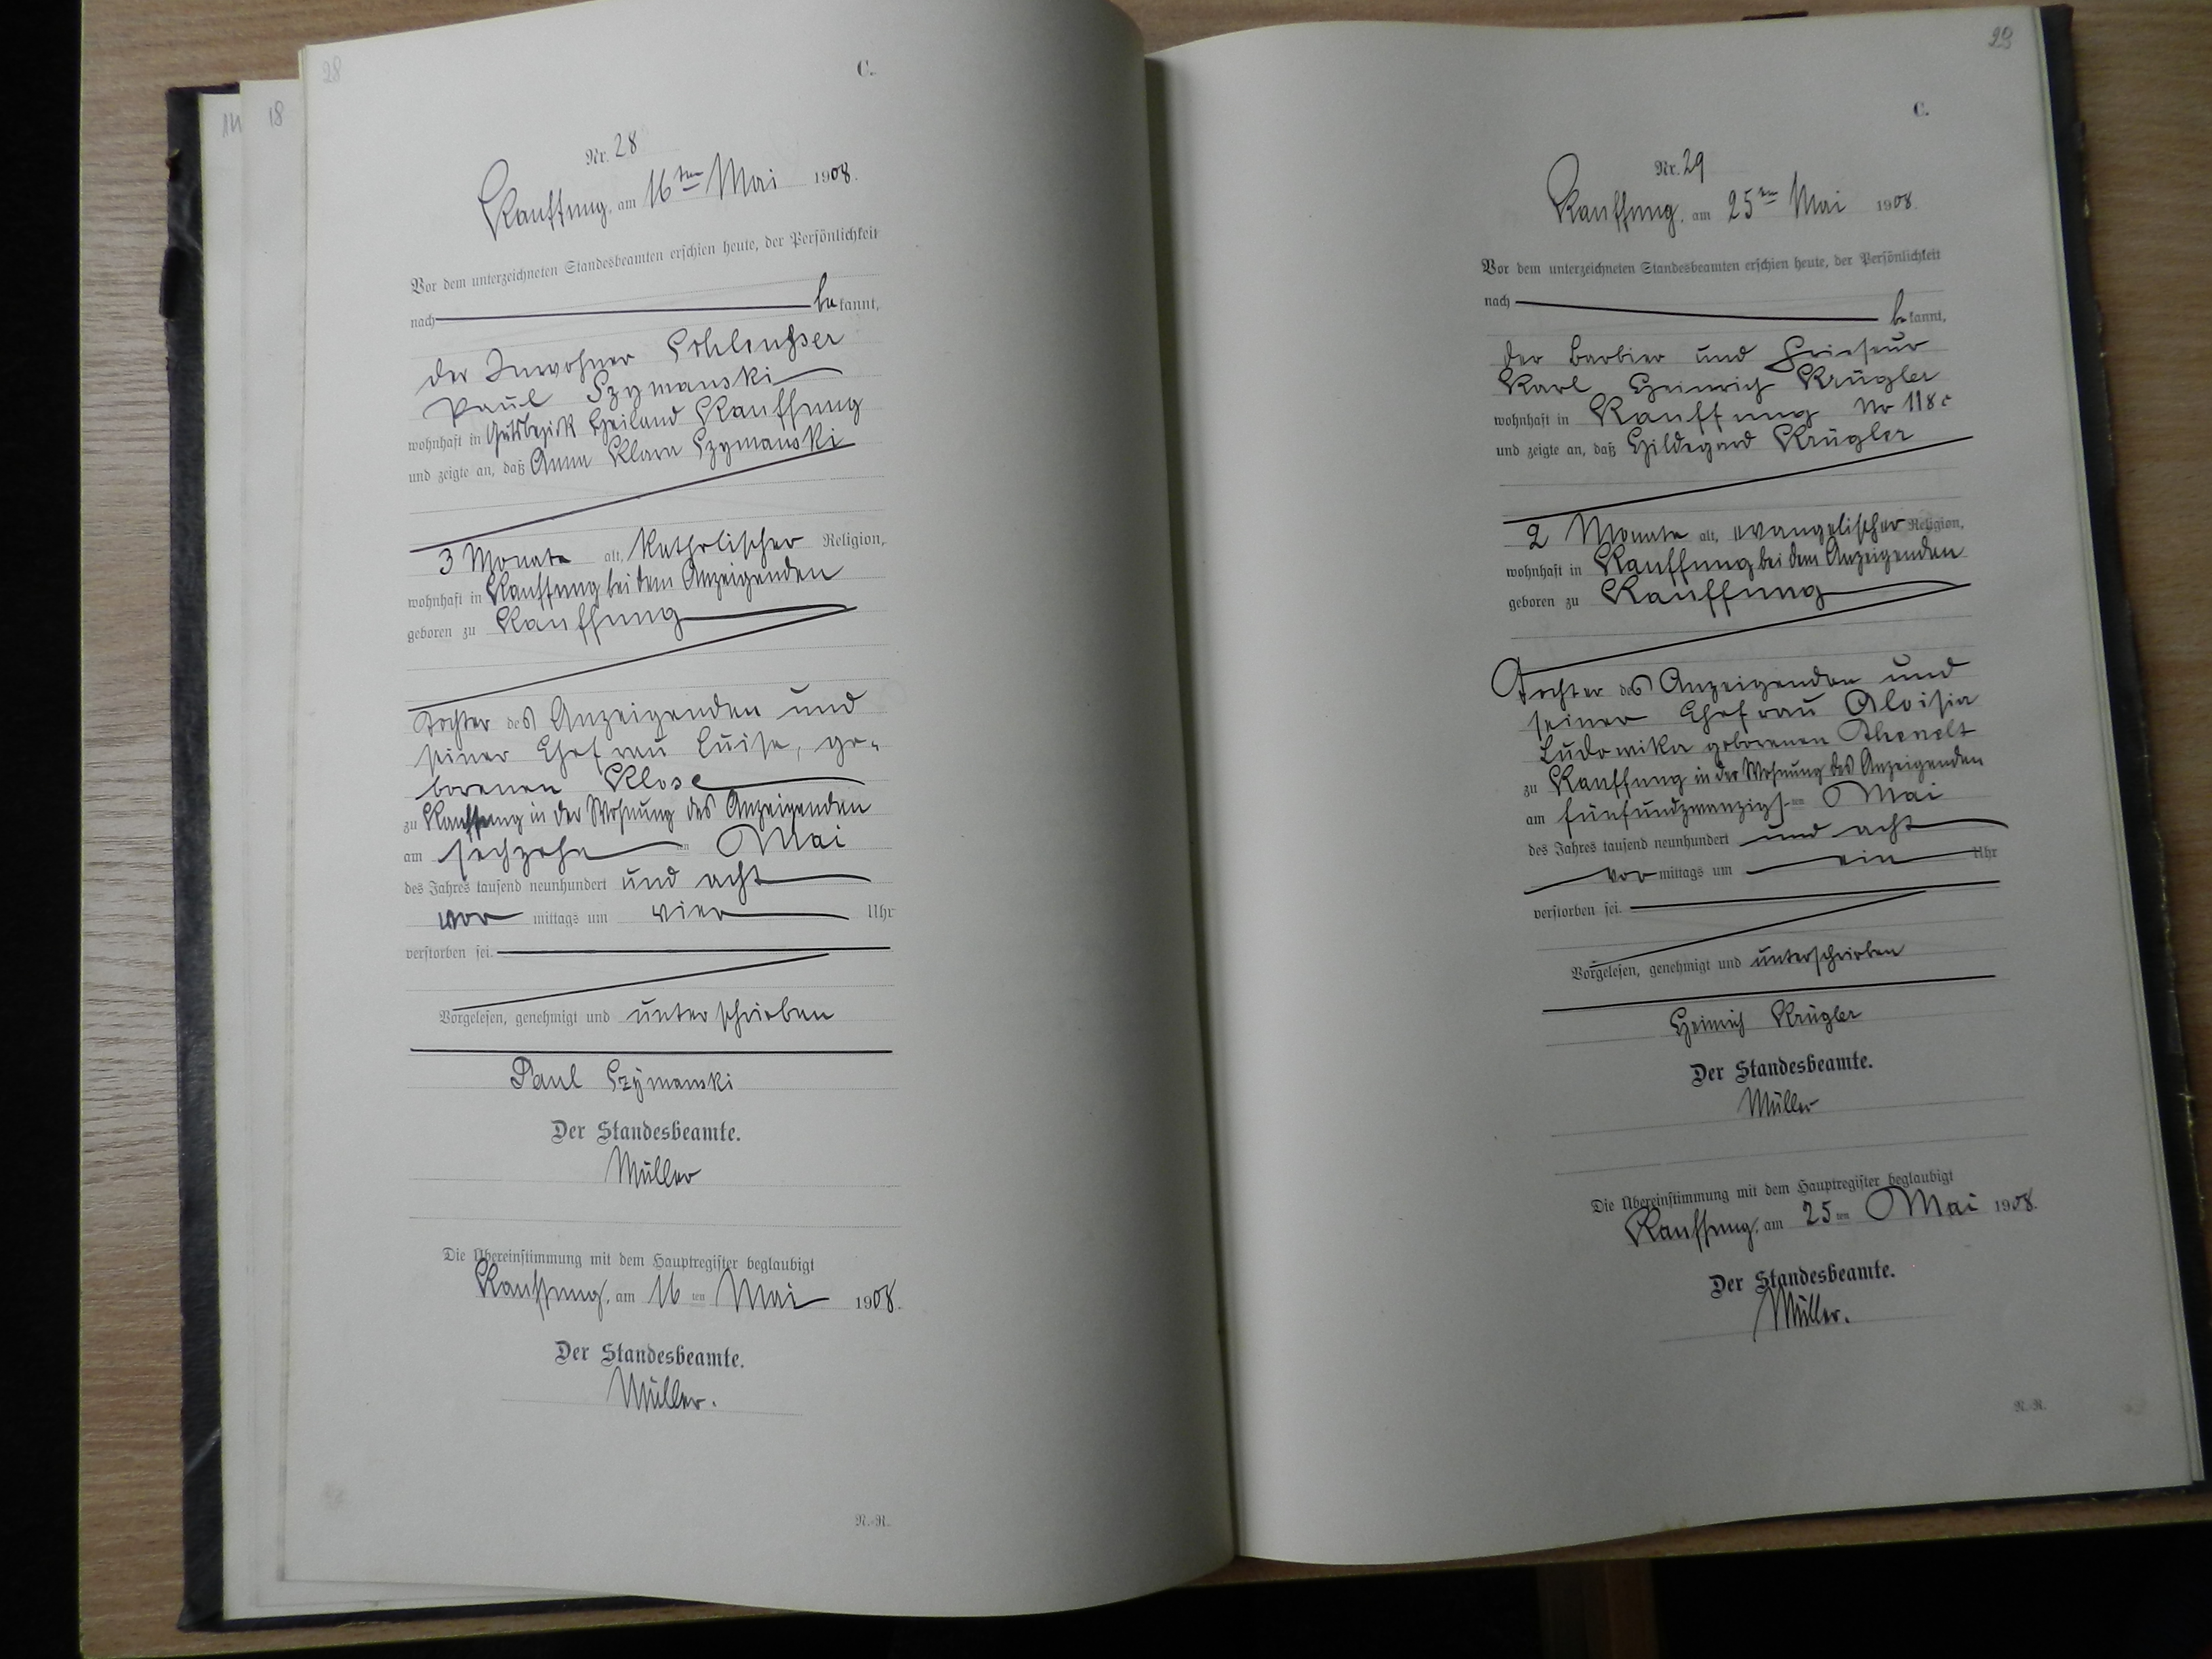 14
18
28
C.
Nr. 28
Kauffung, am 16ten Mai 1908.
Vor dem unterzeichneten Standesbeamten erschien heute, der Persönlichkeit
nach bekannt,
der Inwohner Schleußer
Paul Szymanski
wohnhaft in Gutsbezirk Heiland Kauffung
und zeigte an, daß Anna Klara Szymanski
3 Monate alt, katholischer Religion,
wohnhaft in Kauffung bei dem Anzeigenden
geboren zu Kauffung
Tochter des Anzeigenden und
seiner Ehefrau Luise, ge-
borenen Klose
zu Kauffung in der Wohnung des Anzeigenden
am sechzehnten Mai
des Jahres tausend neunhundert und acht
vormittags um vier Uhr
verstorben sei.
Vorgelesen, genehmigt und unterschrieben
Paul Szymanski
Der Standesbeamte.
Müller
Die Übereinstimmung mit dem Hauptregister beglaubigt
Kauffung, am 16ten Mai 1908.
Der Standesbeamte.
Müller.
N.-R.
29
C.
Nr. 29
Kauffung, am 25ten Mai 1908.
Vor dem unterzeichneten Standesbeamten erschien heute, der Persönlichkeit
nach bekannt,
der Barbier und Friseur
Karl Heinrich Krügler
wohnhaft in Kauffung Nr 118c
und zeigte an, daß Hildegard Krügler
2 Monate alt, evangelischer Religion,
wohnhaft in Kauffung bei dem Anzeigenden
geboren zu Kauffung
Tochter des Anzeigenden und
seiner Ehefrau Aloisia
Ludowika geborenen
zu Kauffung in der Wohnung des Anzeigenden
am fünfundzwanzigsten Mai
des Jahres tausend neunhundert und acht
vormittags um ein Uhr
verstorben sei.
Vorgelesen, genehmigt und unterschrieben
Heinrich Krügler
Der Standesbeamte.
Müller
Die Übereinstimmung mit dem Hauptregister beglaubigt
Kauffung, am 25ten Mai 1908.
Der Standesbeamte.
Müller.
N.-R.